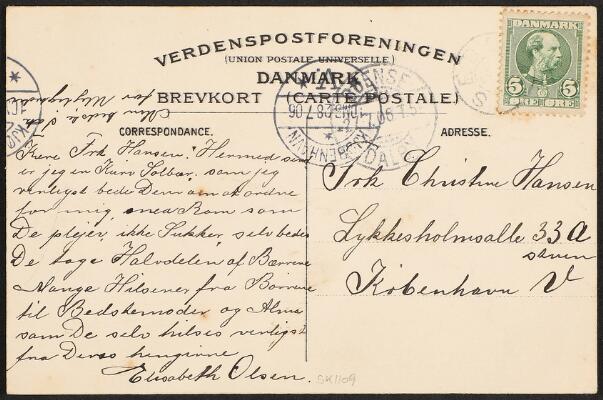 VERDENSPOSTFORENINGEN
(UNION POSTALE UNIVERSELLE)
DANMARK
BREVKORT (CARTE POSTALE)
DANMARK
5 5
ØRE ØRE
KJØBENHAVN
ODENSE
DALBY
CORRESPONDANCE.
ADRESSE.
Kære Frk Hansen! Hermed sender
er jeg en Kurv Solbær, som jeg
venligst beder Dem om at ordne
for mig, med Rom som
De plejer, ikke Sukker, selv bedes
De tage Halvdelen af Bærrene
Mange Hilsener fra Børnene
til Bedstemoder og Alma
som De selv hilses venligst
fra Deres hengivne
Elisabeth Olsen.
Frk Christine Hansen
Lykkesholmsalle 33A
København V
SK1109